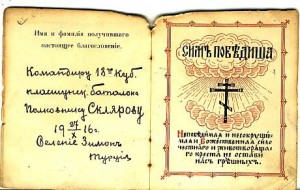 Имя и фамилія получившаго
настоящее благословеніе.
Командиру 18го Куб.
пластунск. баталіона
Полковнику Склярову
19 27/X 16 г.
Селеніе
Турція
СИМЪ ПОБѢДИША
Непобѣдимая и несокруши-
мая и Божественная сило
честнаго и животворяща-
го креста не остави
насъ грѣшныхъ.